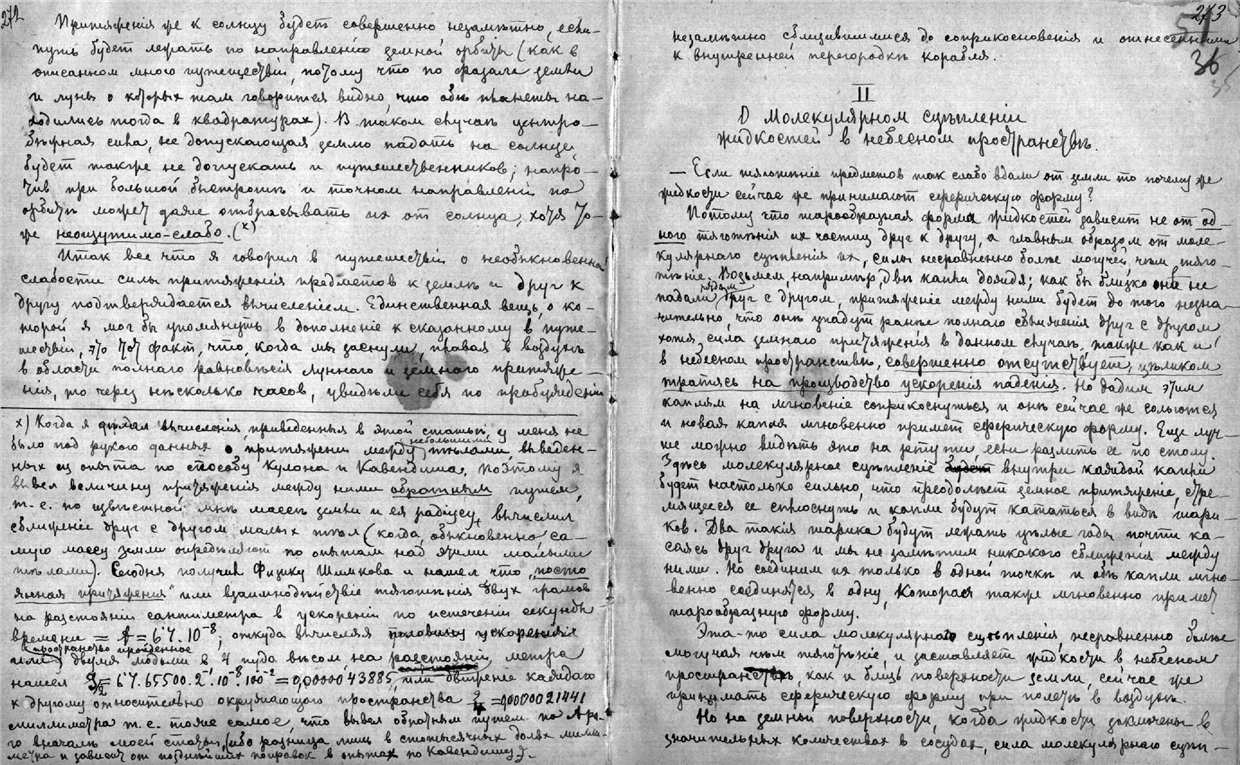 272
Притяженiя же к солнцу будет совершенно незамѣтно, если
путь будет лежать по направленiю земной орбиты (как в
описанном мною путешествiи, потому что по фазам земли
и луны о которых там говорится видно, что обѣ планеты на-
ходились тогда в квадратурах). В таком случаѣ центро-
бѣжная сила, не допускающая землю падать на солнце
будет также не допускать и путешественников; напро-
тив при большой быстротѣ и точном направленiи по
орбитѣ может даже отбрасывать их от солнца, хотя то-
же неощутимо-слабо. (x)
Итак все что я говорил в путешествiи о необыкновенной
слабости силы притяженiя предметов к землѣ и друг к
другу подтверждается вычисленiем. Единственная вещь, о ко-
торой я мог бы упомянуть в дополненiе к сказанному в путе-
шествiи, это тот факт, что, когда мы заснули, плавая в воздухѣ
в области полнаго равновѣсiя луннаго и земнаго притяже-
нiя, то через нѣсколько часов, увидѣли себя по пробужденiи
x) Когда я дѣлал вычисленiя, приведенныя в этой статьѣ, у меня не
было под рукою данных о притяженiи между небольшими тѣлами, выведен-
ных из опыта по способу Кулона и Кавендиша, поэтому я
вывел величину притяженiя между ними обратным путем,
т. е. по извѣстной мнѣ массѣ земли и ея радiусу, вычислил
сближенiе друг с другом малых тѣл (когда, обыкновенно са-
мую массу земли опредѣляют по опытам над этими малыми
тѣлами). Сегодня получил Физику Шимкова и нашел что „посто
янная притяженiя" или взаимнодѣйствiе тяготѣнiя двух грамов
на разстоянiи сантиметра в ускоренiи по истеченiи секунды
времени = f = 67.10⁻⁸; откуда вычисляя половину ускоренiя
пространство пройденное
двумя людьми в 4 пуда вѣсом, на разстоянiи метра
нашел = 67.65500.2.10⁻⁸.100⁻² = 0,0000043885, или движенiе каждаго
к другому относительно окружающаго пространства = 0,0000021441
миллиметра т. е. тоже самое, что вывел обратным путем по
в началѣ моей статьи, (ибо разница лиш в стотысячных долях милли-
метра и зависит от позднѣйших поправок в опытах по Кавендишу).
273
36
незамѣтно сблизившимися до соприкосновенiя и отнесенными
к внутренней перегородкѣ корабля.
II
О Молекулярном сцѣпленiи
жидкостей в небесном пространствѣ.
— Если тяготѣнiе предметов так слабо вдали от земли то почему же
жидкости сейчас же принимают сферическую форму?
Потому что шарообразная форма жидкостей зависит не от од-
ного тяготѣнiя их частиц друг к другу, а главным образом от моле-
кулярнаго сцѣпленiя их, силы несравненно болѣе могучей, чѣм тяго-
тѣнiе. Возьмем, напримѣр, двѣ капли дождя; как бы близко онѣ не
падали рядом друг с другом, притяженiе между ними будет до того незна-
чительно, что онѣ упадут ранѣе полнаго сближенiя друг с другом
хотя, сила земнаго притяженiя в данном случаѣ, также как и
в небесном пространствѣ, совершенно отсутствует, цѣликом
тратясь на производство ускоренiя паденiя. Но дадим этим
каплям на мгновенiе соприкоснуться и онѣ сейчас же сольются
и новая капля мгновенно примет сферическую форму. Еще луч-
ше можно видѣть это на ртути, если разлить ее по столу.
Здѣсь молекулярное сцѣпленiе внутри каждой капли
будет настолько сильно, что преодолѣет земное притяженiе стре-
мящееся ее сплюснуть и капли будут кататься в видѣ шари-
ков. Два такiя шарика будут лежать цѣлые годы, почти ка-
саясь друг друга и мы не замѣтим никакого сближенiя между
ними. Но соединим их только в одной точкѣ и обѣ капли мгно-
венно соединятся в одну, которая также мгновенно примет
шарообразную форму.
Эта-то сила молекулярнаго сцѣпленiя, несравненно болѣе
могучая чѣм тяготѣнiе, и заставляет жидкости в небесном
пространствѣ, как и близь поверхности земли, сейчас же
принимать сферическую форму при полетѣ в воздухѣ.
Но на земной поверхности, когда жидкости заключены в
значительных количествах в сосудах, сила молекулярнаго сцѣп-